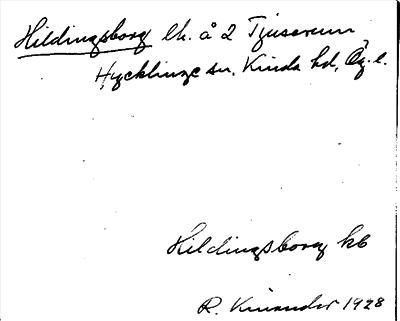 Hildingsborg lh. å 2 Tjuserum
Hycklinge sn, Kinda hd, Ög. l.
Hildingsborg kb
R. Kinander 1928